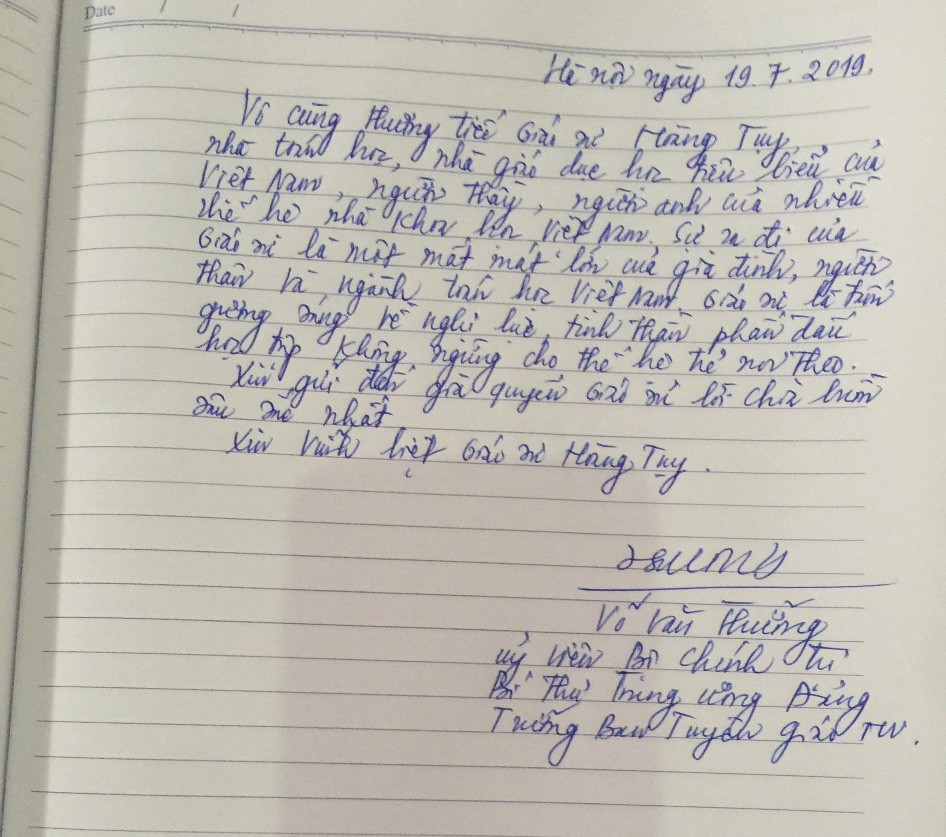 Date / /
Hà nội ngày 19.7.2019.
Vô cùng thương tiếc Giáo sư Hoàng Tụy,
nhà toán học, nhà giáo dục học tiêu biểu của
Việt Nam, người thầy, người anh của nhiều
thế hệ nhà khoa học Việt Nam. Sự ra đi của
Giáo sư là một mất mát lớn của gia đình, người
thân và ngành toán học Việt Nam. Giáo sư là tấm
gương sáng về nghị lực, tinh thần phấn đấu
học tập không ngừng cho thế hệ trẻ noi theo.
Xin gửi đến gia quyến Giáo sư lời chia buồn
sâu sắc nhất
Xin vĩnh biệt Giáo sư Hoàng Tụy.
Võ Văn Thưởng
Uỷ viên Bộ Chính trị
Bí thư Trung ương Đảng
Trưởng Ban Tuyên giáo TW.